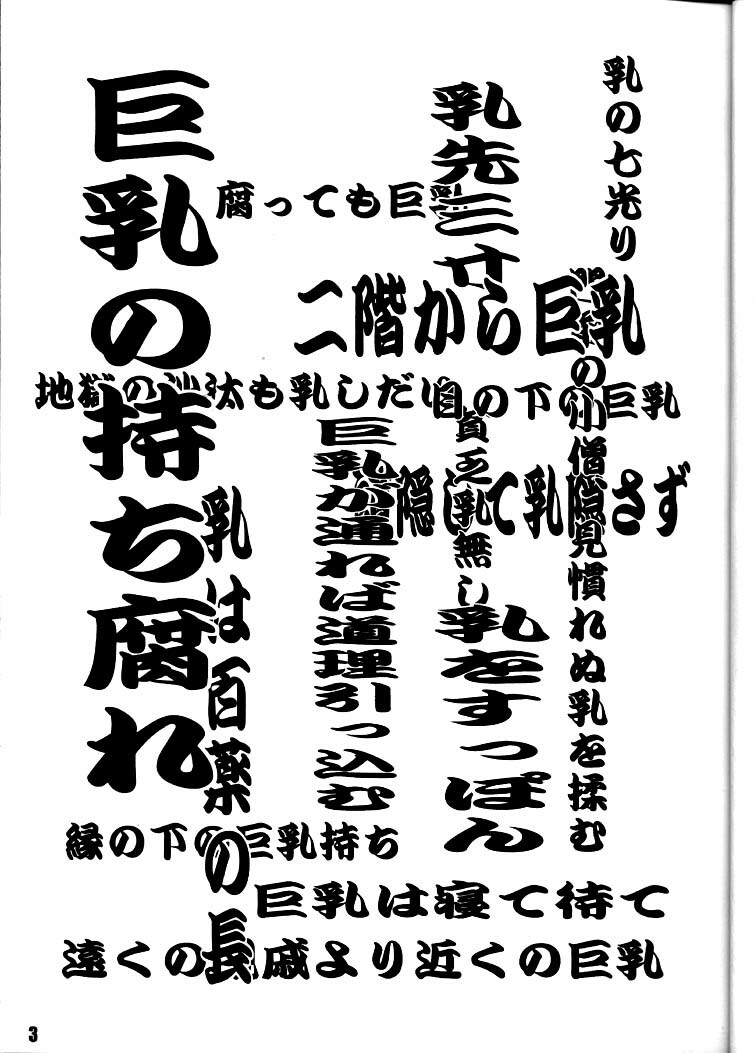 乳の七光り
門前の小僧見慣れぬ乳を揉む
乳先三寸
二階から巨乳
腐っても巨乳
地獄の沙汰も乳しだい
目の下の巨乳
隠して乳隠さず
貧乏乳無し
乳をすっぽん
巨乳が通れば道理引っ込む
巨乳の持ち腐れ
乳は百薬の長
縁の下の巨乳持ち
巨乳は寝て待て
遠くの親戚より近くの巨乳
3